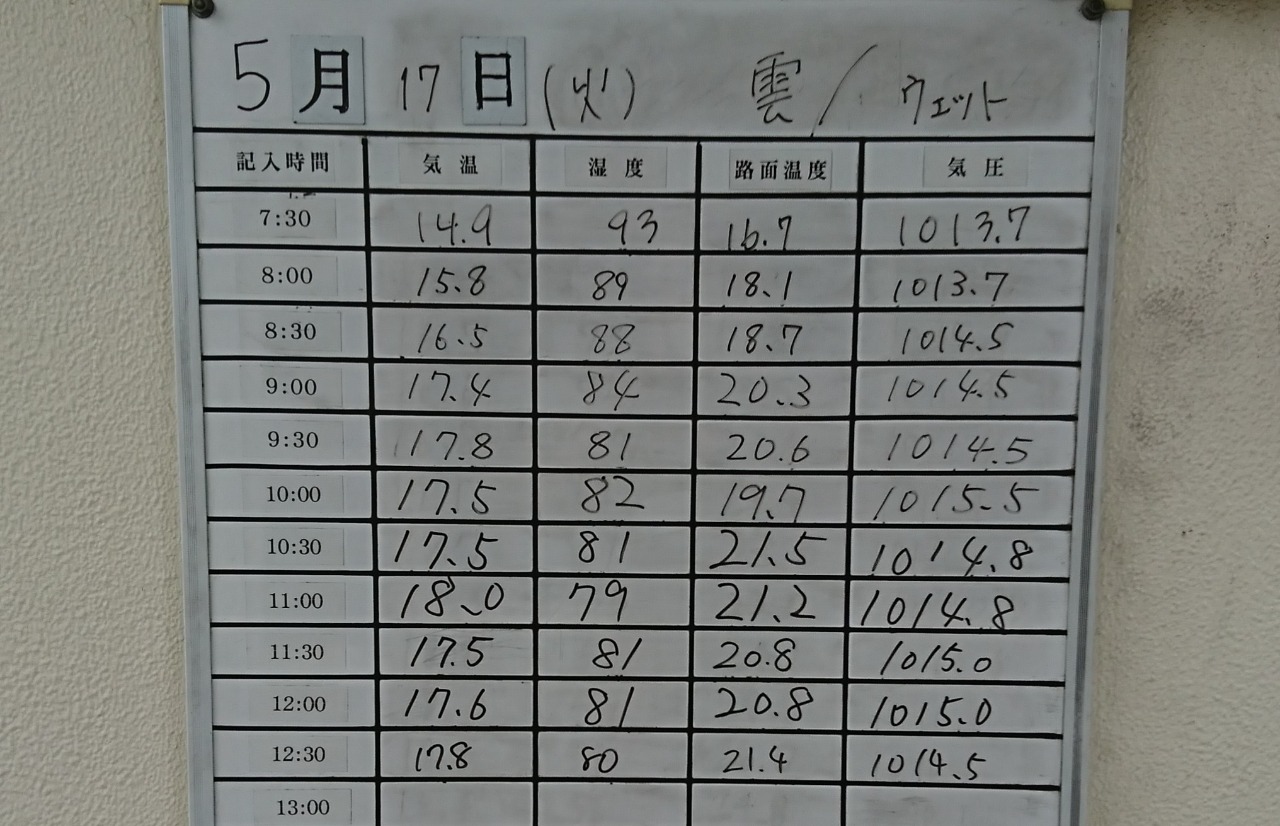 5月17日(火) 雲/ウェット
記入時間 気温 湿度 路面温度 気圧
7:30 14.9 93 16.7 1013.7
8:00 15.8 89 18.1 1013.7
8:30 16.5 88 18.7 1014.5
9:00 17.4 84 20.3 1014.5
9:30 17.8 81 20.6 1014.5
10:00 17.5 82 19.7 1015.5
10:30 17.5 81 21.5 1014.8
11:00 18.0 79 21.2 1014.8
11:30 17.5 81 20.8 1015.0
12:00 17.6 81 20.8 1015.0
12:30 17.8 80 21.4 1014.5
13:00